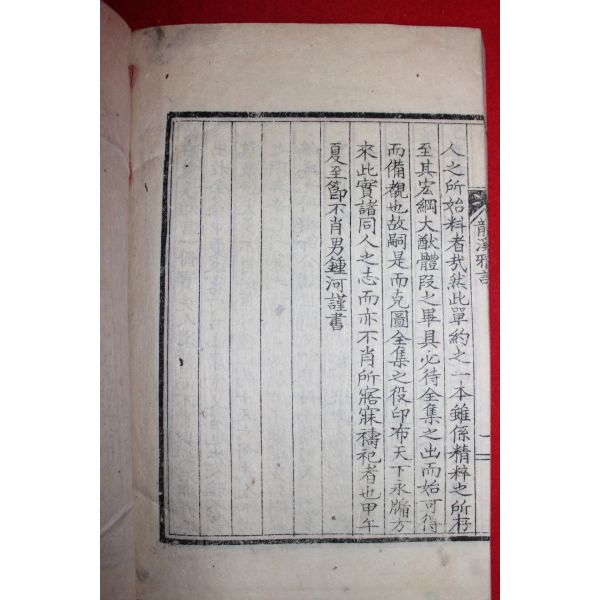 龍溪雅言
人之所始料者哉然此單約之一本雖係精粹之所存
至其宏綱大猷體段之畢具必待全集之出而始可得
而備覩也故嗣是而克圖全集之役印布天下永牖方
來此實諸同人之志而亦不肖所寤寐禱祀者也甲午
夏至節不肖男鍾河謹書